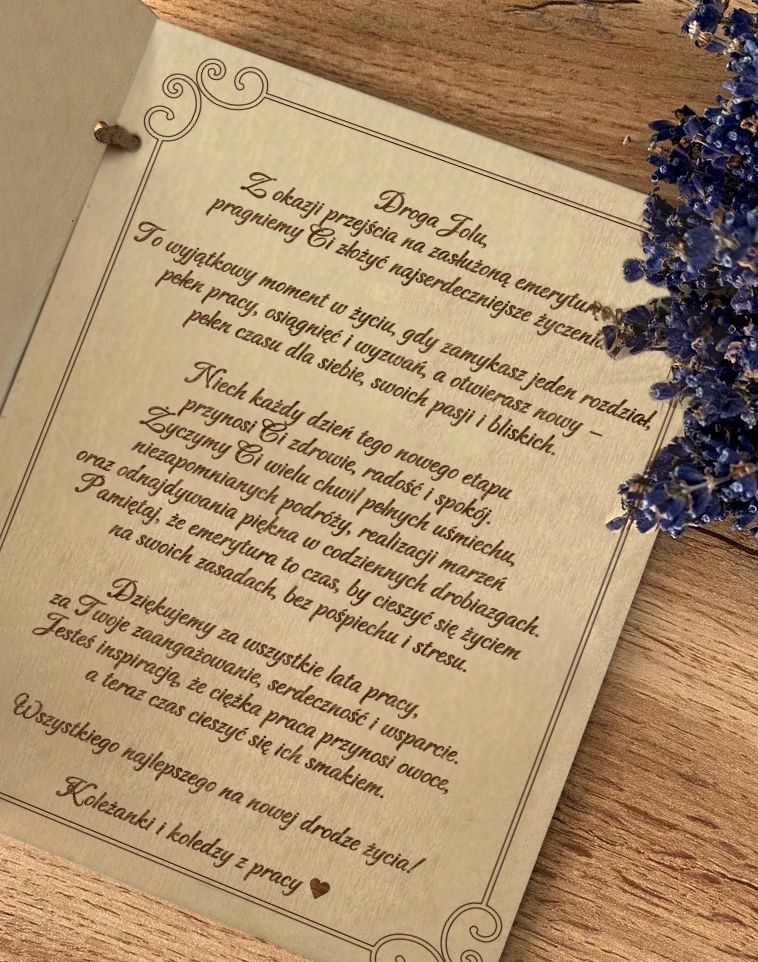 Droga Jolu,
Z okazji przejścia na zasłużoną emeryturę
pragniemy Ci złożyć najserdeczniejsze życzenia.
To wyjątkowy moment w życiu, gdy zamykasz jeden rozdział,
pełen pracy, osiągnięć i wyzwań, a otwierasz nowy –
pełen czasu dla siebie, swoich pasji i bliskich.
Niech każdy dzień tego nowego etapu
przynosi Ci zdrowie, radość i spokój.
Życzymy Ci wielu chwil pełnych uśmiechu,
niezapomnianych podróży, realizacji marzeń
oraz odnajdywania piękna w codziennych drobiazgach.
Pamiętaj, że emerytura to czas, by cieszyć się życiem
na swoich zasadach, bez pośpiechu i stresu.
Dziękujemy za wszystkie lata pracy,
za Twoje zaangażowanie, serdeczność i wsparcie.
Jesteś inspiracją, że ciężka praca przynosi owoce,
a teraz czas cieszyć się ich smakiem.
Wszystkiego najlepszego na nowej drodze życia!
Koleżanki i koledzy z pracy ♥